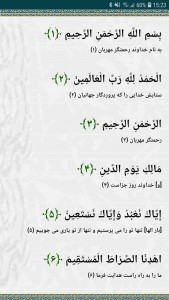 60% 15:23
بِسْمِ اللَّهِ الرَّحْمَنِ الرَّحِيمِ ﴿۱﴾
به نام خداوند رحمتگر مهربان (۱)
الْحَمْدُ لِلَّهِ رَبِّ الْعَالَمِينَ ﴿۲﴾
ستایش خدایی را که پروردگار جهانیان (۲)
الرَّحْمَنِ الرَّحِيمِ ﴿۳﴾
رحمتگر مهربان (۳)
مَالِكِ يَوْمِ الدِّينِ ﴿۴﴾
[و] خداوند روز جزاست (۴)
إِيَّاكَ نَعْبُدُ وَإِيَّاكَ نَسْتَعِينُ ﴿۵﴾
[بار الها] تنها تو را می پرستیم و تنها از تو یاری می جوییم (۵)
اهْدِنَا الصِّرَاطَ الْمُسْتَقِيمَ ﴿۶﴾
ما را به راه راست هدایت فرما (۶)